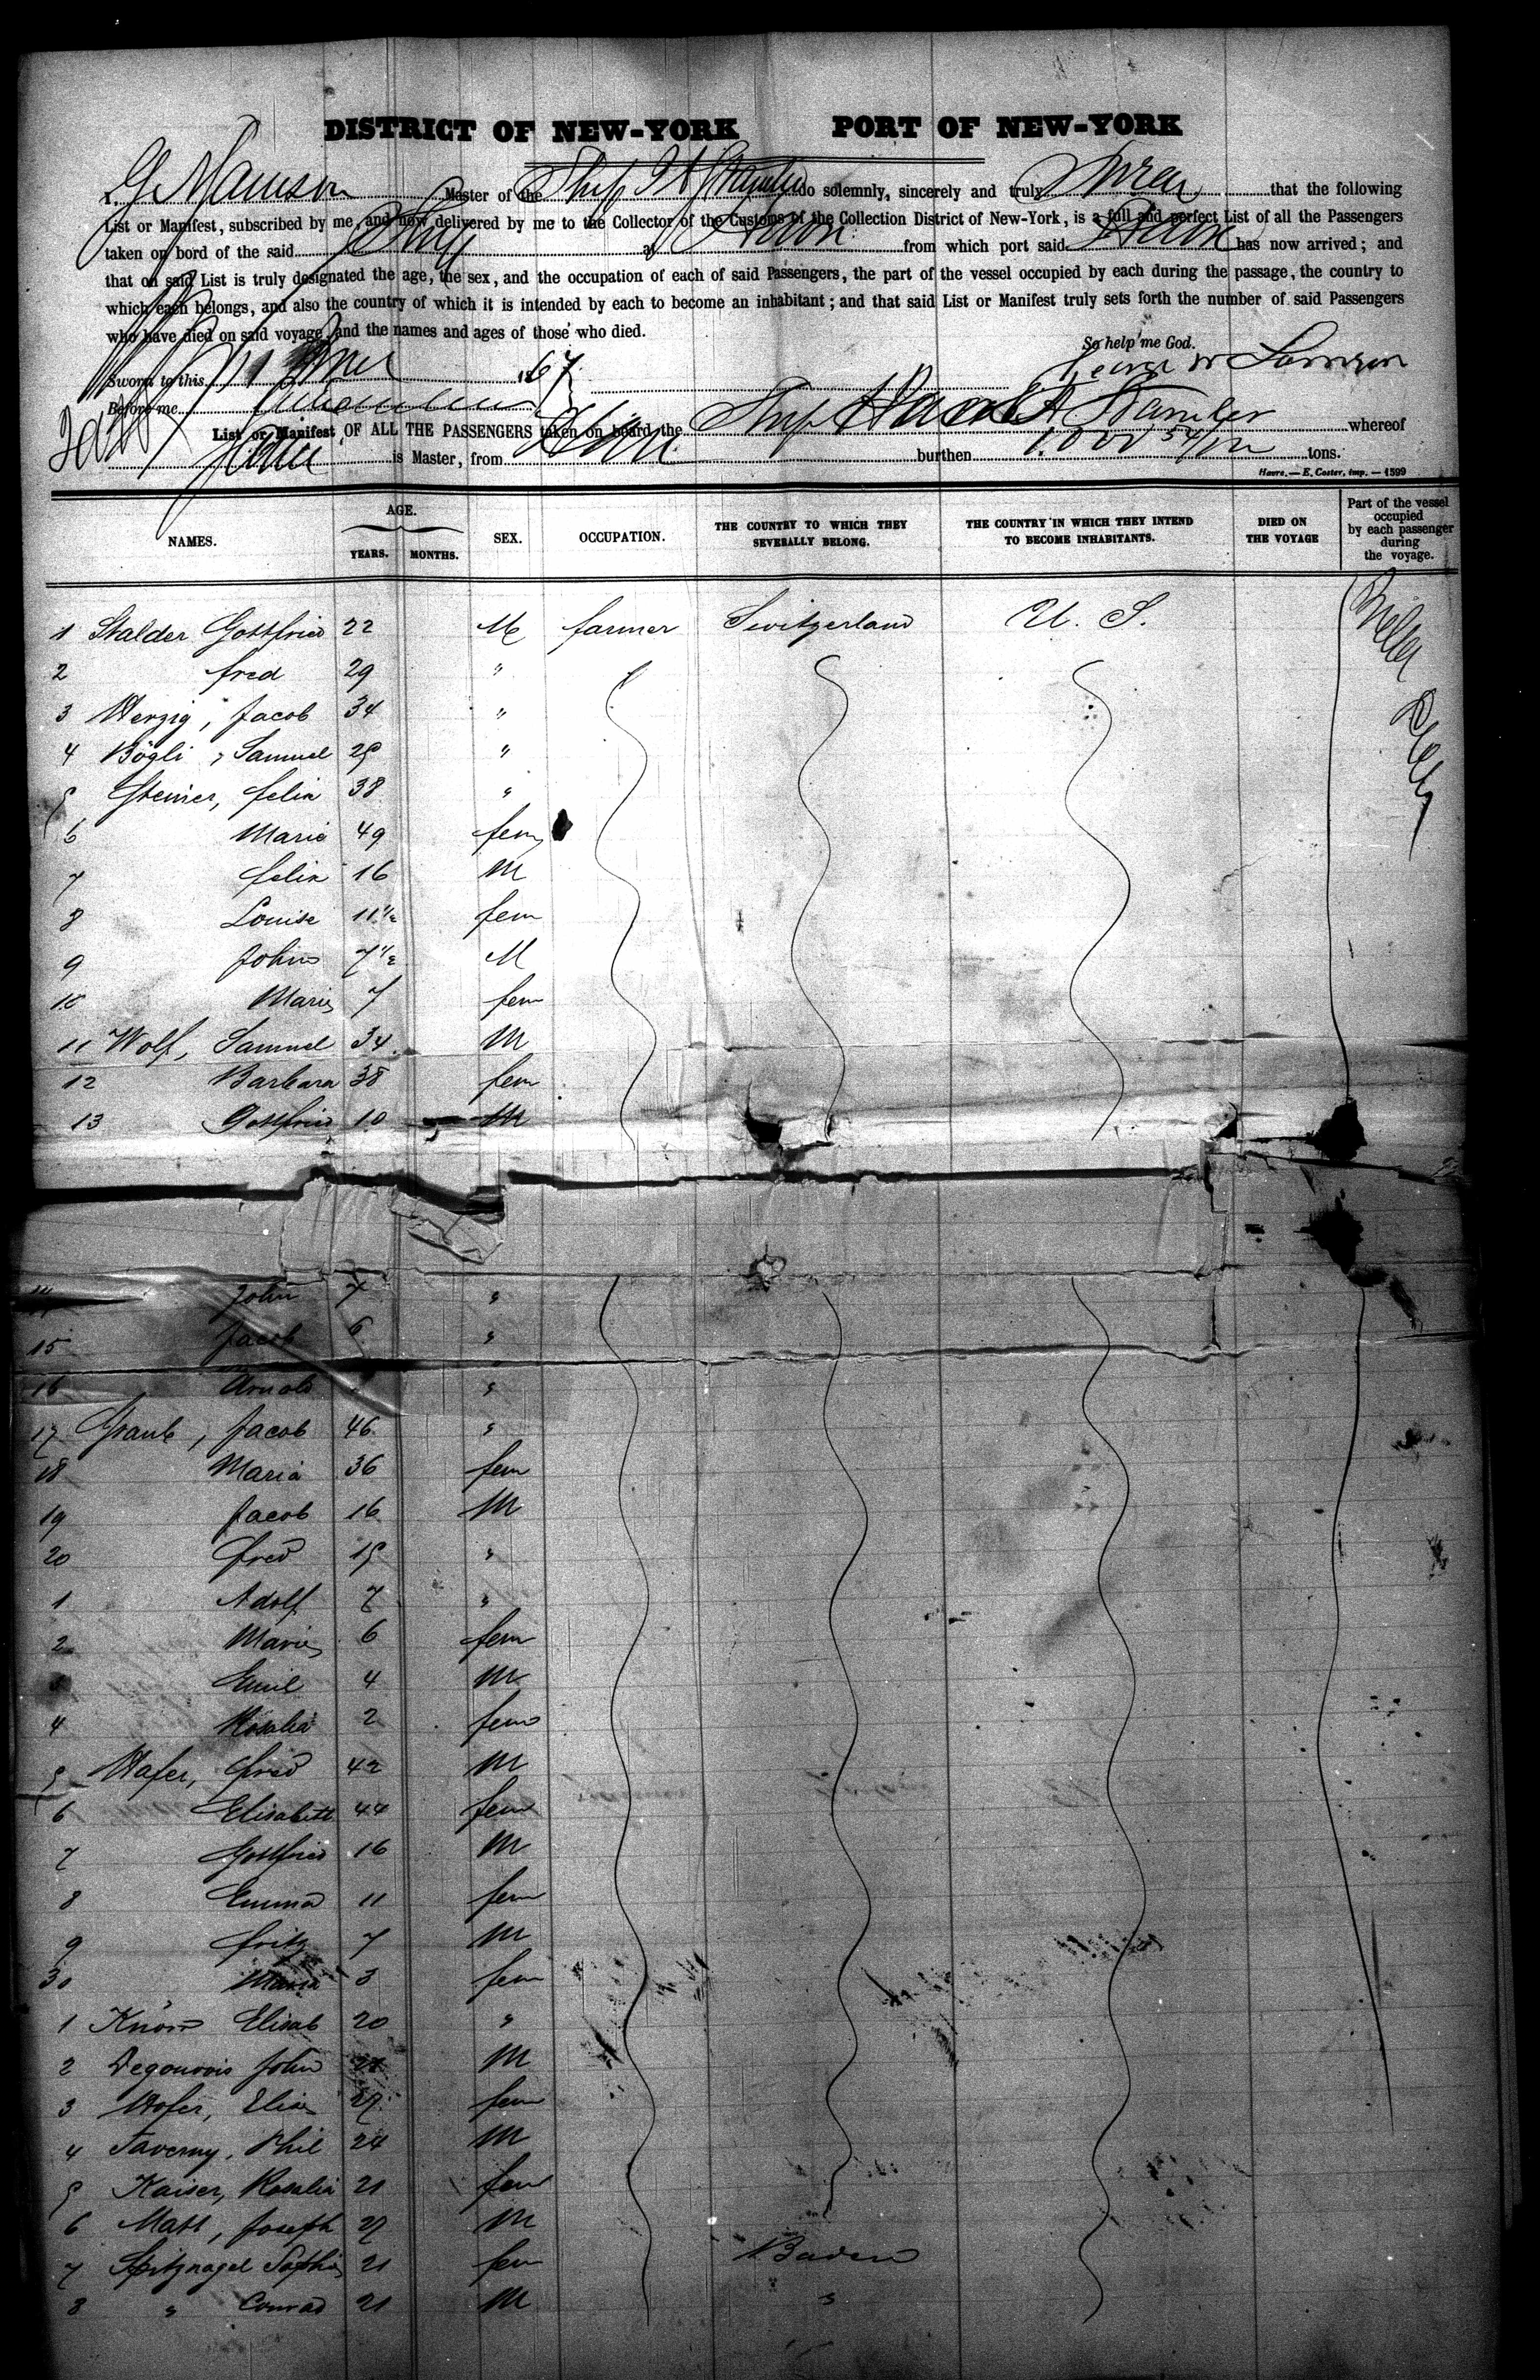 DISTRICT OF NEW-YORK PORT OF NEW-YORK
I, Master of the Ship do solemnly, sincerely and truly Swear that the following
List or Manifest, subscribed by me, and now delivered by me to the Collector of the Customs of the Collection District of New-York, is a full and perfect List of all the Passengers
taken on bord of the said Ship at Havre from which port said has now arrived; and
that on said List is truly designated the age, the sex, and the occupation of each of said Passengers, the part of the vessel occupied by each during the passage, the country to
which each belongs, and also the country of which it is intended by each to become an inhabitant; and that said List or Manifest truly sets forth the number of said Passengers
who have died on said voyage, and the names and ages of those who died.
So help me God.
Sworn to this 1867
Before me
List or Manifest OF ALL THE PASSENGERS taken on board the Ship whereof
is Master, from burthen tons.
Havre.—E. Coster, imp.—1599
NAMES. AGE. YEARS. MONTHS. SEX. OCCUPATION. THE COUNTRY TO WHICH THEY SEVERALLY BELONG. THE COUNTRY IN WHICH THEY INTEND TO BECOME INHABITANTS. DIED ON THE VOYAGE Part of the vessel occupied by each passenger during the voyage.
1 Stalder Gottfried 22 M farmer Switzerland U. S.
2 fred 29 "
3 Herzig, Jacob 34 "
4 Bögli, Samuel 29 "
5 Steiner, felix 38 "
6 Marie 49 fem
7 felix 16 M
8 Louise 11 1/2 fem
9 John 7 1/2 M
10 Marie 7 fem
11 Wolf, Samuel 34 M
12 Barbara 38 fem
13 Gottfried 10 M
14 John 7 "
15 Jacob 6 "
16 Arnold "
17 Graub, Jacob 46 "
18 Maria 36 fem
19 Jacob 16 M
20 fred 15 "
1 Adolf 7 "
2 Marie 6 fem
3 Emil 4 M
4 Rosalie 2 fem
5 Hafer, fred 42 M
6 Elisabeth 44 fem
7 Gottfried 16 M
8 Emma 11 fem
9 fritz 7 M
30 Maria 3 fem
1 Elisab 20 "
2 Degourois John M
3 Hofer, Elise 27 fem
4 Taverny, Phil 24 M
5 Kaiser, Rosalie 21 fem
6 Matt, Joseph 27 M
7 Spitznagel Sophie 21 fem Baden
8 " Conrad 21 M "